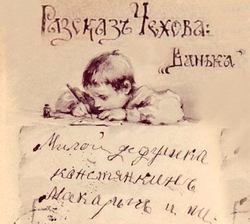 Разсказъ Чехова:
„Ванька"
Милой дедушка
канстянкинъ
Макарычъ и пи.